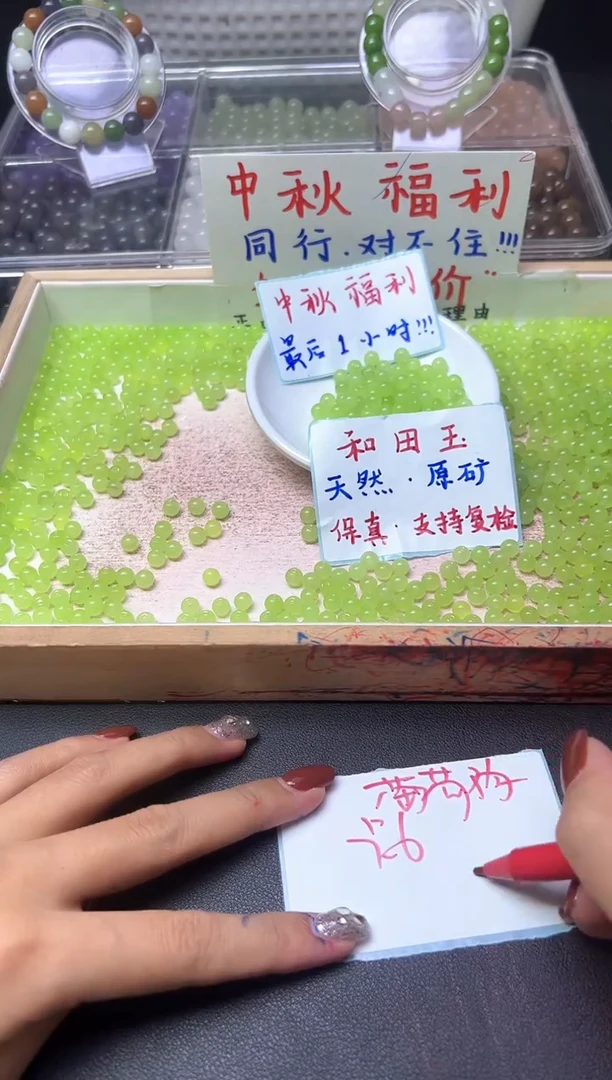 中秋福利
同行.对不住!!!
价"
中秋福利
最后1小时!!!
理由
和田玉
天然·原矿
保真·支持复检